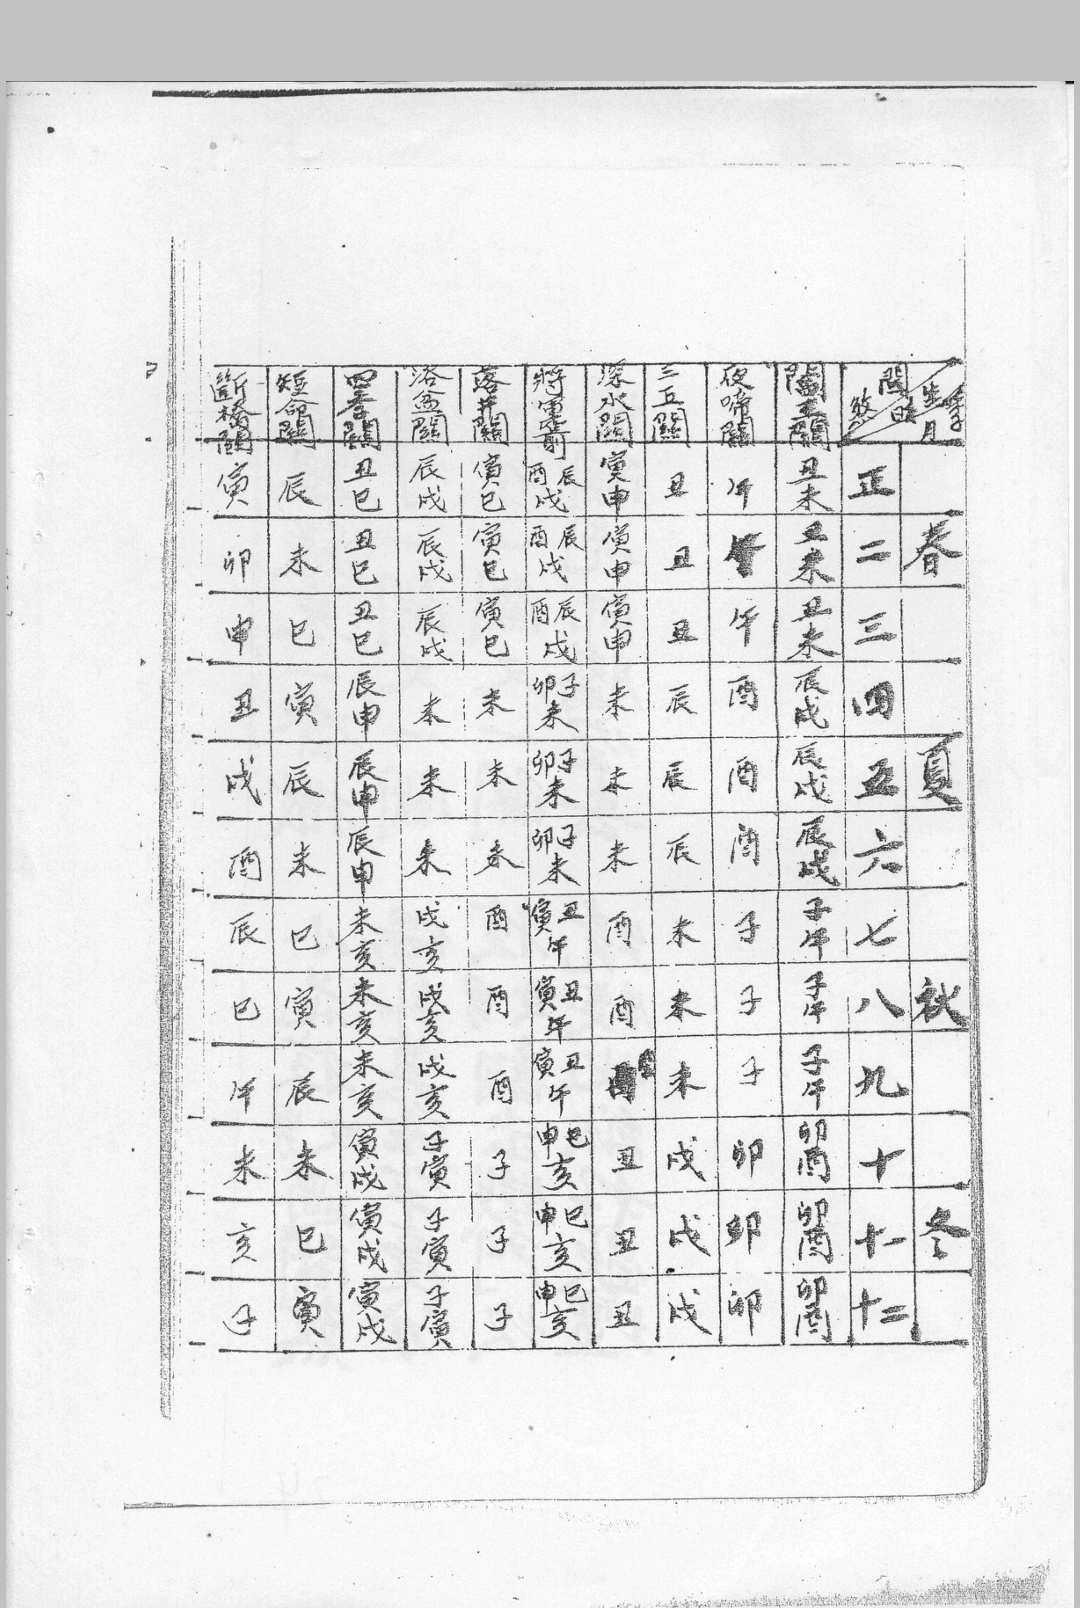 季 生月 時 關煞 閻王關 夜啼關 三丘關 深水關 將軍箭 落井關 浴盆關 四季關 短命關 斷橋關
正 丑未 午 丑 寅申 辰酉戌 寅巳 辰戌 丑巳 辰 寅
春 二 丑未 丑 寅申 辰酉戌 寅巳 辰戌 丑巳 未 卯
三 丑未 午 丑 寅申 辰酉戌 寅巳 辰戌 丑巳 巳 申
四 辰戌 酉 辰 未 子卯未 未 未 辰申 寅 丑
夏 五 辰戌 酉 辰 未 子卯未 未 未 辰申 辰 戌
六 辰戌 酉 辰 未 子卯未 未 未 辰申 未 酉
七 子午 子 未 酉 丑寅午 酉 戌亥 未亥 巳 辰
秋 八 子午 子 未 酉 丑寅午 酉 戌亥 未亥 寅 巳
九 子午 子 未 酉 丑寅午 酉 戌亥 未亥 辰 午
十 卯酉 卯 戌 丑 巳申亥 子 子寅 寅戌 未 未
冬 十一 卯酉 卯 戌 丑 巳申亥 子 子寅 寅戌 巳 亥
十二 卯酉 卯 戌 丑 巳申亥 子 子寅 寅戌 寅 子